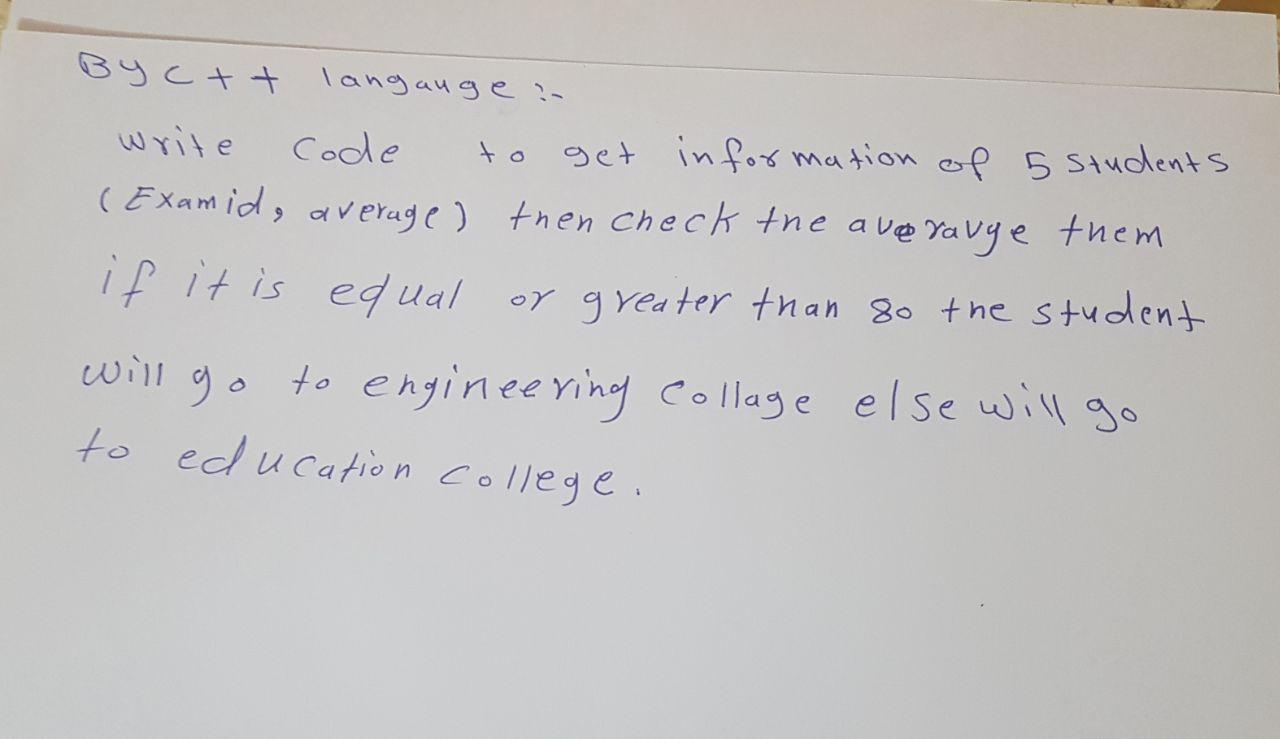 By c++ langauge :-
write code to get information of 5 students
(Examid, average) then check the averavge them
if it is equal or greater than 80 the student
will go to engineering collage else will go
to education college.